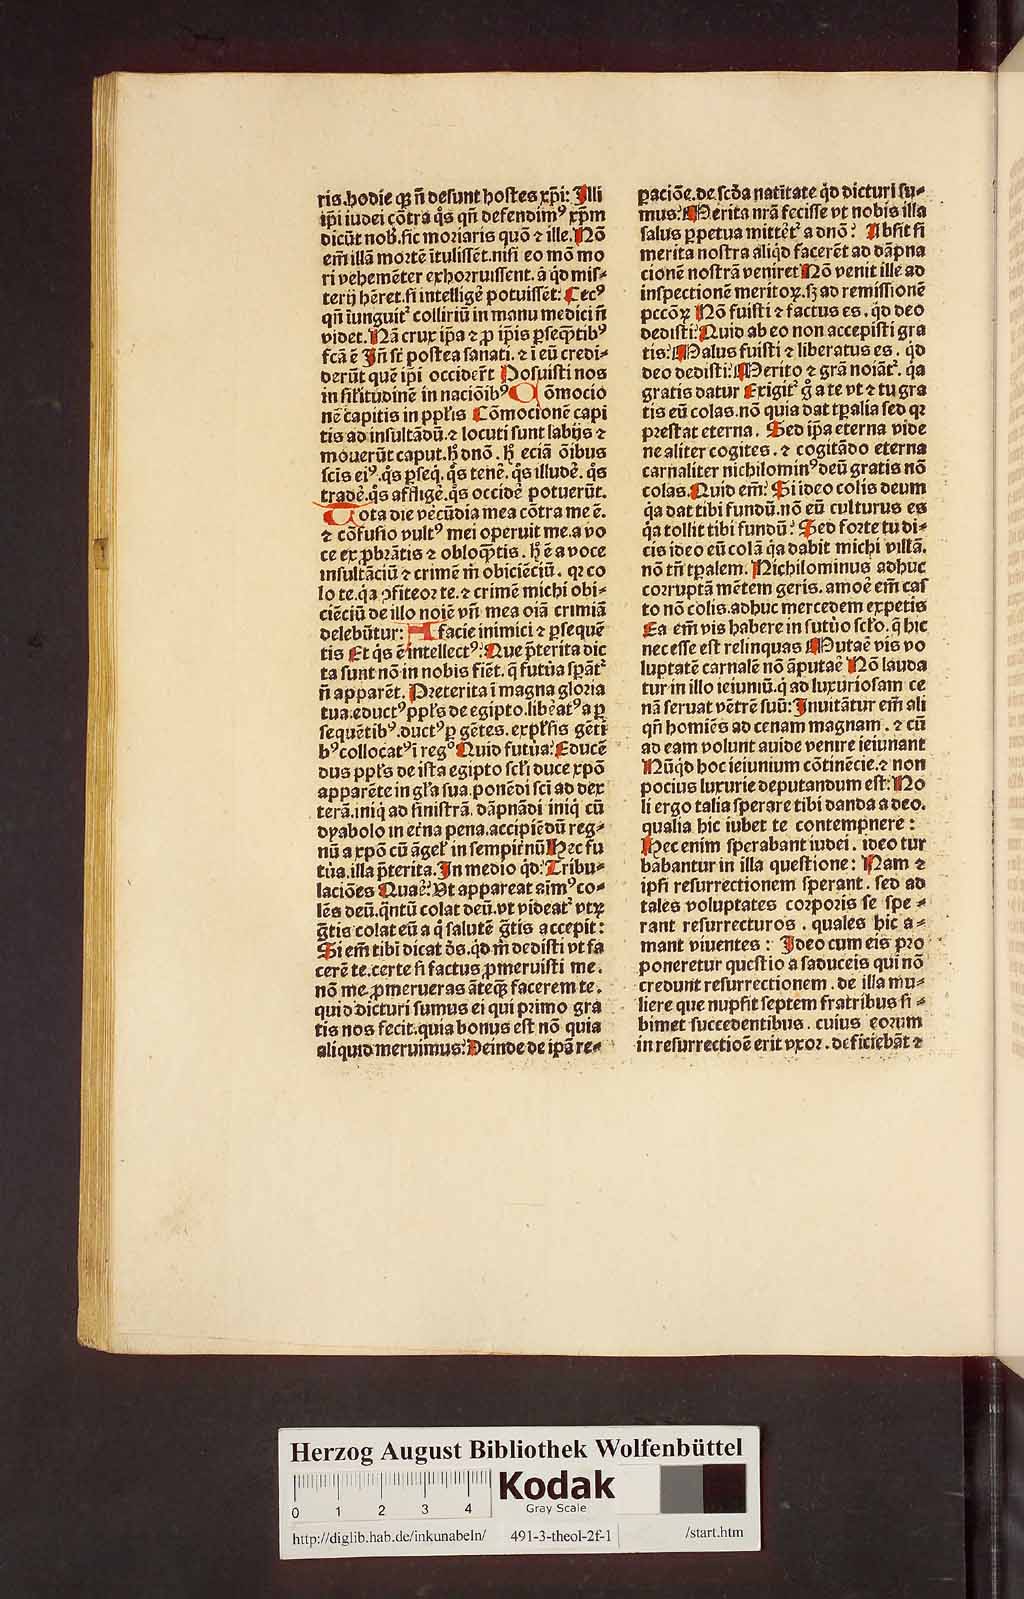 ris.hodie qꝫ nō desunt hostes xp̄i: Illi
ip̄i iudei cōtra q̊s qn̄ defendimꝰ xp̄m
dicūt nob̄.sic moriaris quō ⁊ ille. Nō
em̄ illā mortē ītulissēt.nisi eo mō mo
ri vehemēter exhorruissent. ā qd̓ mis⸗
terij hēret.si intelligē potuissēt: Cecꝰ
qn̄ īunguitᷣ colliriū in manu medici n̄
videt. Nā crux ip̄a ⁊ ꝓ ip̄is ꝑseqn̄tibꝰ
fc̄a ē In̄ st̄ postea sanati. ⁊ ī eū credi⸗
derūt quē ip̄i occiderūt Posuisti nos
in sil̓itudinē in naciōibꝰ Cōmocio
nē capitis in pplīs Cōmocionē capi
tis ad insultādū.⁊ locuti sunt labijs ⁊
mouerūt caput. h̄ dnō . h̄ eciā ōibus
sc̄is eiꝰ. q̊s ꝑseq̄. q̊s tenē. q̊s illudē. q̊s
tradē.q̊s affligē.q̊s occidē potuerūt.
Tota die vecūdia mea cōtra me ē.
⁊ cōfusio vultꝰ mei operuit me.a vo
ce exꝓbrātis ⁊ obloqn̄tis. h̄ ē a voce
insultāciū ⁊ crimē m̄ obiciēciū. qꝛ co
lo te.q̄a ꝯfiteor te.⁊ crimē michi obi⸗
ciēciū de illo noīe vn̄ mea oīā crimiā
delebūtur: A facie inimici ⁊ ꝑsequē
tis Et q̊s ē intellectꝰ: Que p̄terita dic
ta sunt nō in nobis fiēt. q̄ futu᷑a spāt᷑
n̄ apparēt. Preterita ī magna gloria
tua.eductꝰ ppl̄s de egipto.libeātꝰ a ꝑ
sequētibꝰ.ductꝰ ꝑ gētes. expl̄sis gēti
bꝰ collocatꝰ ī regō Quid futu᷑a: Educē
dus ppl̄s de ista egipto scl̄i duce xp̄o
apparēte in gl̄a sua.ponēdi sc̄i ad dex
terā.iniq̄ ad sinistrā. dāpnādi iniq̄ cū
dyabolo in et̓na pena.accipiēdū reg⸗
nū a xp̄o cū āgel̓ in sempiternū Hec fu
tu᷑a.illa p̄terita. In medio qd̓: Tribu⸗
laciōes Quae: Vt appareat aīmꝰ co⸗
lēs deū.q̄ntū colat deū.vt videat᷑ vtꝝ
gr̄tis colat eū a q̊ salutē gr̄tis accepit:
Si em̄ tibi dicat dꝰs.qd̓ m̄ dedisti vt fa
cerē te.certe si factus ꝓmeruisti me.
nō me ꝓmerueras āteqꝫ facerem te.
quid dicturi sumus ei qui primo gra
tis nos fecit.quia bonus est nō quia
aliquid meruimus: Deinde de ip̄a re⸗
pacióe.de scd̄a natītate qd̓ dicturi su⸗
mus: Merita nr̄a fecisse vt nobis illa
salus ꝑpetua mittēt᷑ a dnō: Absit si
merita nostra aliqd̓ facerēt ad dāpna
cionē nostrā veniret Nō venit ille ad
inspectionē meritoꝝ.sꝫ ad remissionē
pccōꝝ Nō fuisti ⁊ factus es. qd̓ deo
dedisti: Quid ab eo non accepisti gra
tis: Malus fuisti ⁊ liberatus es. qd̓
deo dedisti: Merito ⁊ grā noīat᷑. q̄a
gratis datur Exigit᷑ g̊ a te vt ⁊ tu gra
tis eū colas.nō quia dat tꝑalia sed qꝛ
prestat eterna. Sed ip̄a eterna vide
ne aliter cogites. ⁊ cogitādo eterna
carnaliter nichilominꝰ deū gratis nō
colas. Quid em̄: Si ideo colis deum
q̄a dat tibi fundū.nō eū culturus es
q̄a tollit tibi fundū: Sed forte tu di⸗
cis ideo eū colā q̄a dabit michi villā.
nō tn̄ tꝑalem. Nichilominus adhuc
corruptā mētem geris. amoē em̄ cas
to nō colis.adhuc mercedem expetis
Ea em̄ vis habere in futu᷑o scl̄o. q̄ hic
necesse est relinquas Mutaē vis vo
luptatē carnalē nō āputaē Nō lauda
tur in illo ieiuniū.q̄ ad luxuriosam ce
nā seruat vētrē suū: Inuitātur em̄ ali
qn̄ homīes ad cenam magnam. ⁊ cū
ad eam volunt auide venire ieiunant
Nūqd̓ hoc ieiunium cōtinēcie.⁊ non
pocius luxurie deputandum est: No
li ergo talia sperare tibi danda a deo.
qualia hic iubet te contempnere :
Hec enim sperabant iudei. ideo tur
babantur in illa questione: Nam ⁊
ipsi resurrectionem sperant. sed ad
tales voluptates corporis se spe⸗
rant resurrecturos. quales hic a⸗
mant viuentes: Ideo cum eis pro
poneretur questio a saduceis qui nō
credunt resurrectionem. de illa mu⸗
liere que nupsit septem fratribus si⸗
bimet succedentibus. cuius eorum
in resurrectiōe erit vxor. deficiebāt ⁊
Herzog August Bibliothek Wolfenbüttel
0 1 2 3 4
Kodak
Gray Scale
http://diglib.hab.de/inkunabeln/ 491-3-theol-2f-1 /start.htm